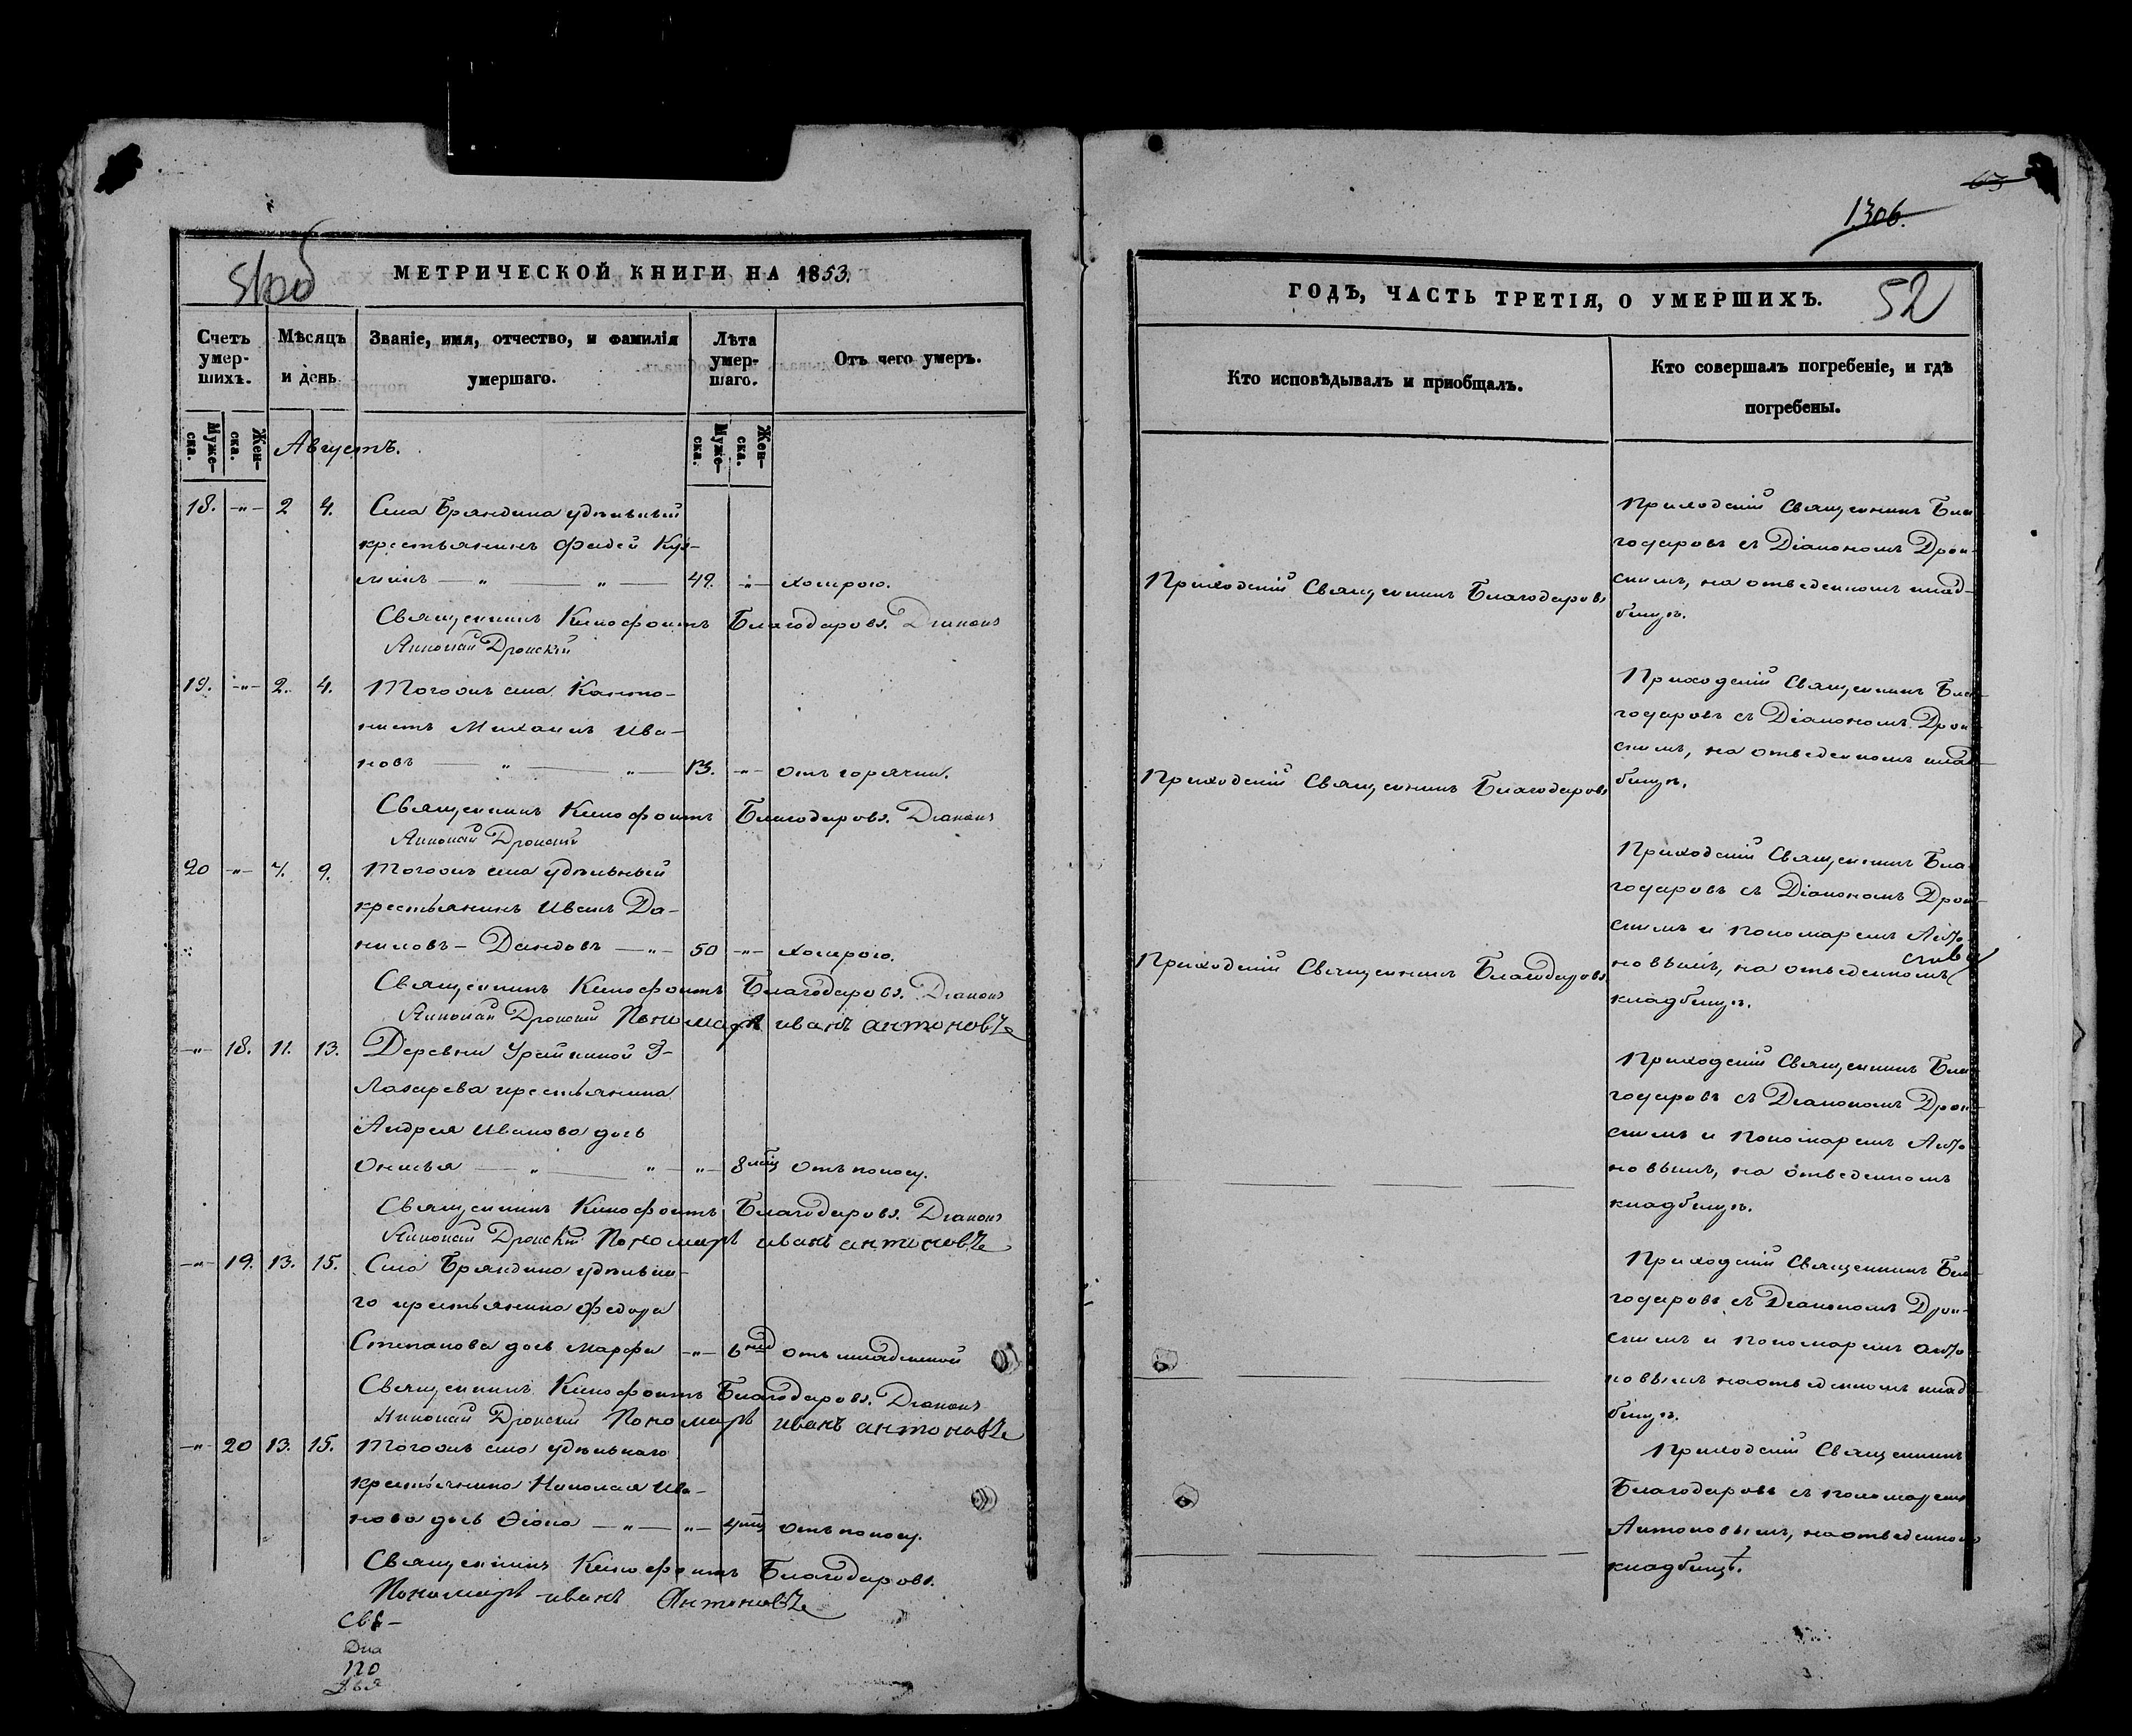 51об
МЕТРИЧЕСКОЙ КНИГИ НА 1853.
Счетъ умер-шихъ.
Мѣсяцъ и день
Званіе, имя, отчество, и фамилія умершаго.
Лѣта умер-шаго.
Отъ чего умеръ.
Муже-ска.
Жен-ска.
Муже-ска.
Жен-ска.
Августъ.
18. -"- 2 4. Села Бряндина удѣльный
крестьянинъ Фадей Куз-
минъ — " — " — 49. -"- холерою.
Священникъ Ксенофонтъ Благодаровъ. Діаконъ
Николай Дронскій
19. -"- 2. 4. Тогожъ села Канто-
нистъ Михаилъ Ива-
новъ — " — " — 13. -"- отъ горячки.
Священникъ Ксенофонтъ Благодаровъ. Діаконъ
Николай Дронскій
20 -"- 7. 9. Тогожъ села удѣльный
крестьянинъ Иванъ Да-
ниловъ — -"- 50 -"- холерою.
Священникъ Ксенофонтъ Благодаровъ. Діаконъ
Николай Дронскій Пономарь иванъ антоновъ
-"- 18. 11. 13. Деревни
Лазарева крестьянина
Андрея Иванова дочь
— " — " -"- 8 мѣц отъ поносу.
Священникъ Ксенофонтъ Благодаровъ. Діаконъ
Николай Дронскій Пономарь иванъ антоновъ
-"- 19. 13. 15. Села Бряндина удѣльна-
го крестьянина Федора
Степанова дочь Марфа -"- 6 нед отъ младенской
Священникъ Ксенофонтъ Благодаровъ. Діаконъ
Николай Дронскій Пономарь иванъ антоновъ
-"- 20 13. 15. Тогожъ села удѣльнаго
крестьянина Николая Ива-
нова дочь — " — " — 4 мѣц отъ поносу.
Священникъ Ксенофонтъ Благодаровъ.
Пономарь иванъ Антоновъ
Свя-
Диа
По
1306.
ГОДЪ, ЧАСТЬ ТРЕТІЯ, О УМЕРШИХЪ.
52
Кто исповѣдывалъ и пріобщалъ.
Кто совершалъ погребеніе, и гдѣ погребены.
Приходскій Священникъ Благодаровъ
Приходскій Священникъ Бла
годаровъ съ Діакономъ Дрон-
скимъ, на отведенномъ клад-
бищѣ.
Приходскій Священникъ Благодаровъ
Приходскій Священникъ Бла-
годаровъ съ Діакономъ Дрон-
скимъ, на отведенномъ клад-
бищѣ.
Приходскій Священникъ Благодаровъ
Приходскій Священникъ Бла-
годаровъ съ Діакономъ Дрон-
скимъ и пономаремъ Анто-
новымъ, на отведенномъ
кладбищѣ.
Приходскій Священникъ Бла-
годаровъ съ Діакономъ Дрон-
скимъ и пономаремъ Анто-
новымъ, на отведенномъ
кладбищѣ.
Приходскій Священникъ Бла-
годаровъ съ Діакономъ Дрон-
скимъ и пономаремъ анто-
новымъ на отведенномъ клад-
бищѣ.
Приходскій Священникъ
Благодаровъ съ пономаремъ
Антоновымъ, на отведенномъ
кладбищѣ.